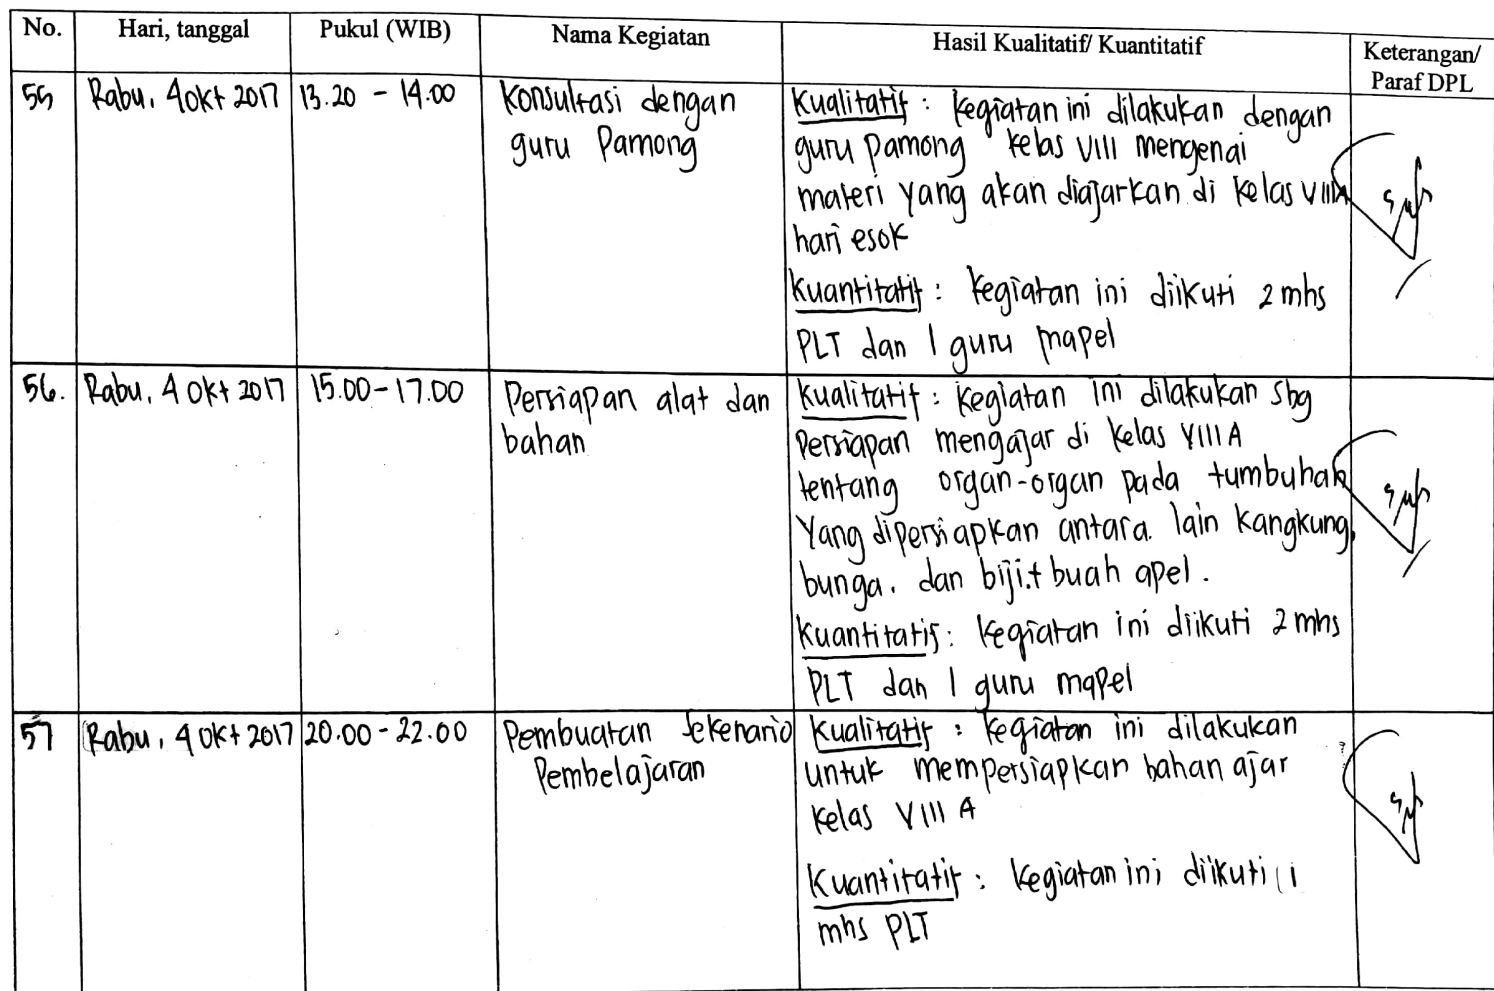 No. Hari, tanggal Pukul (WIB) Nama Kegiatan Hasil Kualitatif/ Kuantitatif Keterangan/
Paraf DPL
55 Rabu, 4 Okt 2017 13.20 - 14.00 Konsultasi dengan
guru Pamong
Kualitatif : kegiatan ini dilakukan dengan
guru pamong kelas VIII mengenai
materi yang akan diajarkan di kelas VIIIA
hari esok
Kuantitatif : kegiatan ini diikuti 2 mhs
PLT dan 1 guru mapel
56. Rabu, 4 Okt 2017 15.00 - 17.00 Persiapan alat dan
bahan
Kualitatif : kegiatan ini dilakukan sbg
persiapan mengajar di kelas VIII A
tentang organ-organ pada tumbuhan
Yang dipersiapkan antara lain kangkung,
bunga, dan biji + buah apel.
Kuantitatif : kegiatan ini diikuti 2 mhs
PLT dan 1 guru mapel
57 Rabu, 4 Okt 2017 20.00 - 22.00 Pembuatan Sekenario
Pembelajaran
Kualitatif : kegiatan ini dilakukan
untuk mempersiapkan bahan ajar
kelas VIII A
Kuantitatif : kegiatan ini diikuti 1
mhs PLT